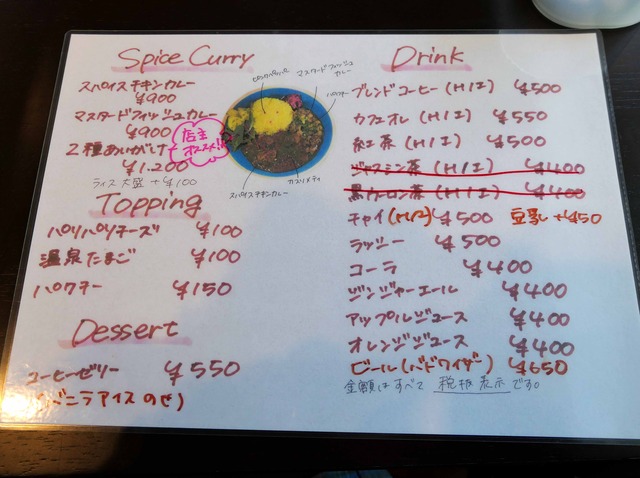 Spice Curry
スパイスチキンカレー
¥900
マスタードフィッシュカレー
¥900
2種あいがけ
¥1,200
店主
オススメ!
ライス大盛 +¥100
ピンクペッパー
マスタードフィッシュ
カレー
パクチー
スパイスチキンカレー
カスリメティ
Topping
パリパリチーズ ¥100
温泉たまご ¥100
パクチー ¥150
Dessert
コーヒーゼリー ¥550
(バニラアイスのせ)
Drink
ブレンドコーヒー(H/I) ¥500
カフェオレ(H/I) ¥550
紅茶(H/I) ¥500
ジャスミン茶(H/I) ¥400
黒ウーロン茶(H/I) ¥400
チャイ(H/I) ¥500 豆乳 +¥50
ラッシー ¥500
コーラ ¥400
ジンジャーエール ¥400
アップルジュース ¥400
オレンジジュース ¥400
ビール(バドワイザー) ¥650
金額はすべて 税抜表示です。